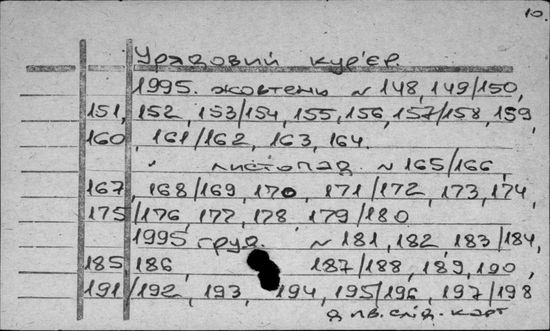 10.
Урядовий кур'єр
1995. жовтень № 148, 149/150,
151, 152, 153/154, 155, 156, 157/158, 159,
160, 161/162, 163, 164.
" листопад № 165/166,
167, 168/169, 170, 171/172, 173, 174,
175/176, 177, 178, 179/180
1995 груд. № 181, 182 183/184,
185, 186, 187/188, 189, 190,
191/192, 193, 194, 195/196, 197/198
слід. карт